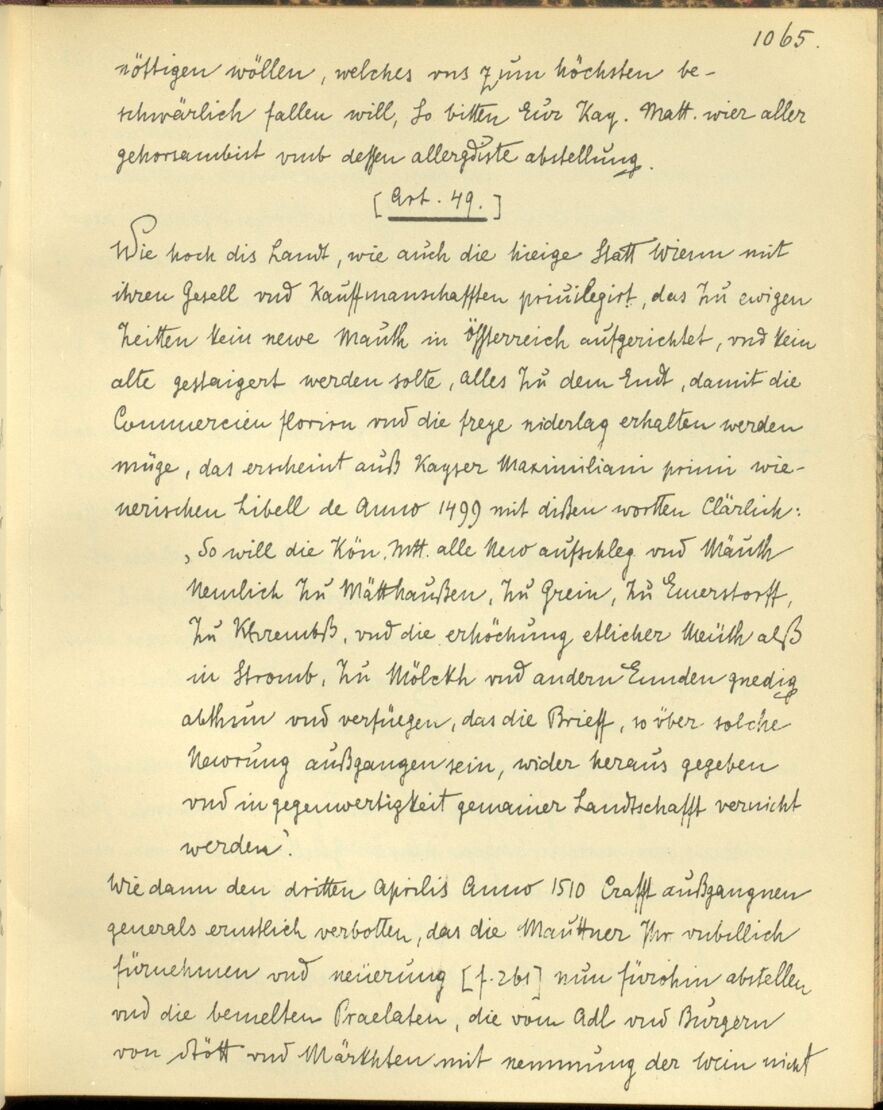 1065.
nöttigen wöllen, welches vns zum höchsten be-
schwärlich fallen will, So bitten Eur Kay. Matt. wier aller
gehorsambist vmb dessen allergdiste abstellung.
[Art. 49.]
Wie hoch dis Landt, wie auch die hieige Statt Wienn mit
ihren Gesell vnd Kauffmanschafften priuilegirt, das zu ewigen
zeitten kein newe Mauth in Össterreich aufgerichtet, vnd kein
alte gestaigert werden solte, alles zu dem Endt, damit die
Commercien florirn vnd die freye niderlag erhalten werden
müge, das erscheint auß Kayser Maximiliani primi wie-
nerischen Libell de Anno 1499 mit dißen wortten Clärlich:
„So will die Kön. Mtt. alle New aufschleg vnd Mäuth
Nemlich zu Mätthaußen, zu Grein, zu Emerstorff,
zu Khrembß, vnd die erhöchung etlicher Meüth alß
in Stromb, zu Mölckh vnd andern Ennden gnedig
abthun vnd verfüegen, das die Brieff, so über solche
Newrung außgangen sein, wider heraus gegeben
vnd in gegenwertigkeit gemainer Landtschafft vernicht
werden".
Wie dann den dritten Aprilis Anno 1510 Crafft außgangnen
generals ernstlich verbotten, das die Mauttner Ihr vnbillich
fürnehmen vnd neüerung [f. 261] nun fürohin abstellen
vnd die bemelten Praelaten, die vom Adl vnd Burgern
von Stött vnd Märkhten mit nemmung der Wein nicht